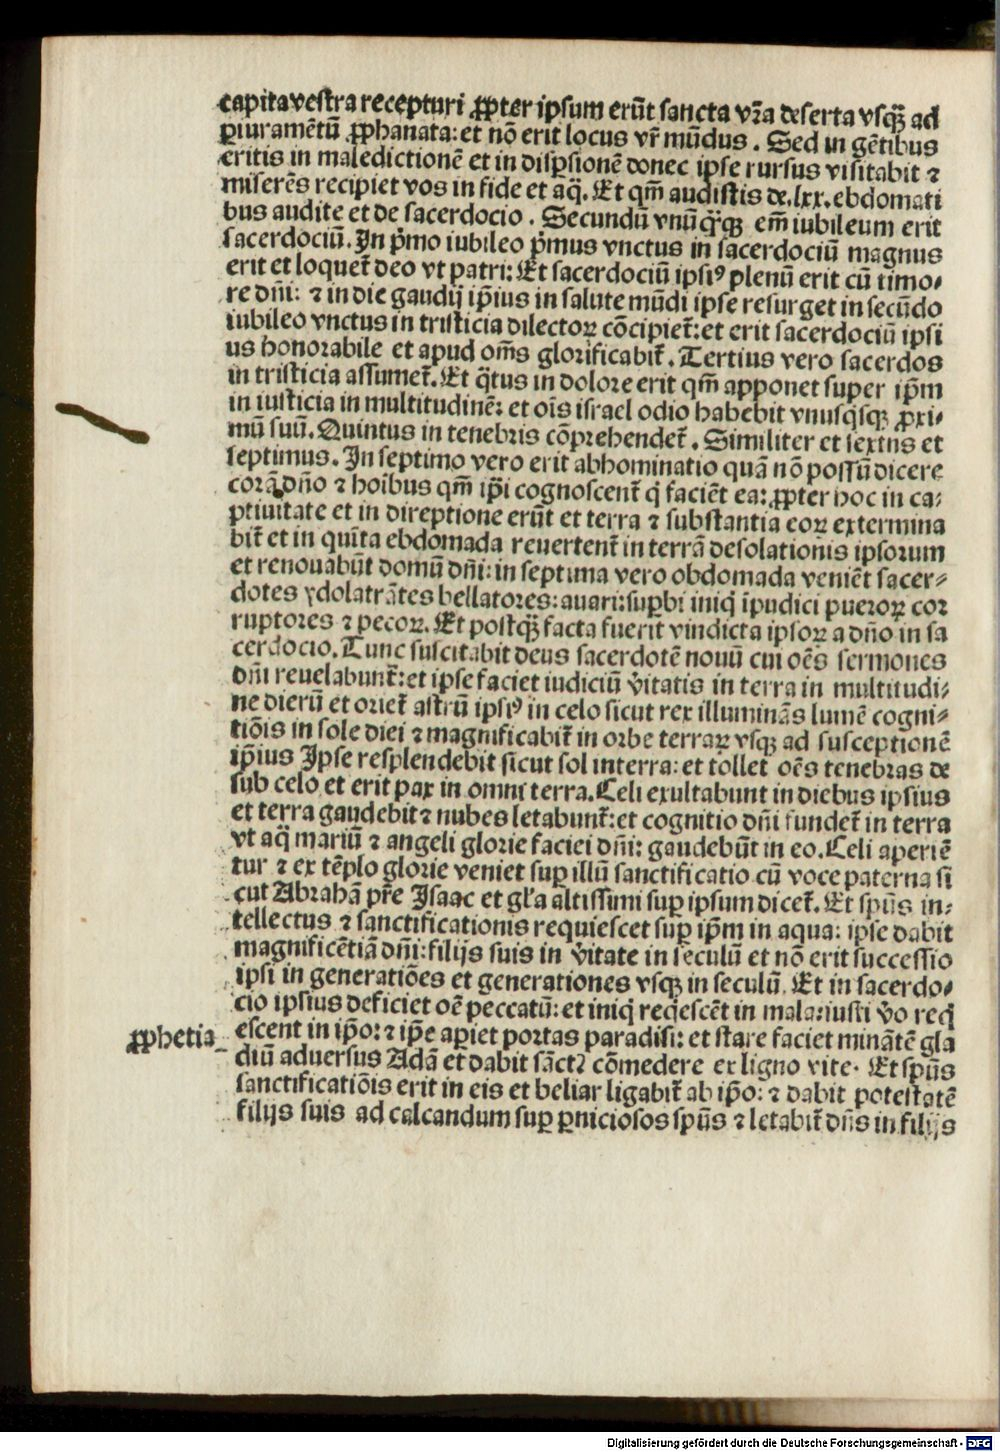 capita vestra recepturi ꝓpter ipsum erūt sancta vr̄a deserta vsqꝫ ad
ꝑiuramētū ꝓphanata: et nō erit locus vr̄ mūdus. Sed in gētibus
eritis in maledictionē et in dispsionē donec ipse rursus visitabit ⁊
miserēs recipiet vos in fide et aq̄. Et qm̄ audistis de.lxx.ebdomati
bus audite et de sacerdocio. Secundū vnūq̄qꝫ em̄ iubileum erit
sacerdociū. In pͥmo iubileo pͥmus vnctus in sacerdociū magnus
erit et loquet̄ deo vt patri: Et sacerdociū ipsiꝰ plenū erit cū timo⸗
re dn̄i: ⁊ in die gaudij ip̄ius in salute mūdi ipse resurget in secūdo
iubileo vnctus in tristicia dilectoꝝ cōcipiet̄: et erit sacerdociū ipsi
us honorabile et apud om̄s glorificabit̄. Tertius vero sacerdos
in tristicia assumet̄. Et q̄tus in dolore erit qm̄ apponet super ip̄m
in iusticia in multitudinē: et oīs israel odio habebit vnusqͥsqꝫ ꝓxi⸗
mū suū. Quintus in tenebris cōprehendet̄. Similiter et sextus et
septimus. In septimo vero erit abhominatio quā nō possū dicere
corā dn̄o ⁊ hoībus qm̄ ip̄i cognoscent̄ qͥ faciēt ea: ꝓpter hoc in ca⸗
ptiuitate et in direptione erūt et terra ⁊ substantia eoꝝ extermina
bit̄ et in quīta ebdomada reuertent̄ in terrā desolationis ipsorum
et renouabūt domū dn̄i: in septima vero obdomada veniēt sacer⸗
dotes ydolatrātes bellatores: auari: suꝑbi iniqͥ īpudici pueroꝝ cor
ruptores ⁊ pecoꝝ. Et postqꝫ facta fuerit vindicta ipsoꝝ a dn̄o in sa
cerdocio. Tunc suscitabit deus sacerdotē nouū cui oēs sermones
dn̄i reuelabunt̄: et ipse faciet iudiciū v̄itatis in terra in multitudi⸗
ne dierū et oriet̄ astrū ipsiꝰ in celo sicut rex illuminās lumē cogni⸗
tiōis in sole diei ⁊ magnificabit̄ in orbe terraꝝ vsqꝫ ad susceptionē
ip̄ius Ipse resplendebit sicut sol in terra: et tollet oēs tenebras de
sub celo et erit pax in omni terra. Celi exultabunt in diebus ipsius
et terra gaudebit ⁊ nubes letabunt̄: et cognitio dn̄i fundet̄ in terra
vt aq̄ mariū ⁊ angeli glorie faciei dn̄i: gaudebūt in eo. Celi aperiē
tur ⁊ ex tēplo glorie veniet suꝑ illū sanctificatio cū voce paterna si
cut Abrahā pr̄e Isaac et gl̄a altissimi suꝑ ipsum dicet̄. Et sp̄us in⸗
tellectus ⁊ sanctificationis requiescet suꝑ ip̄m in aqua: ipse dabit
magnificētiā dn̄i: filijs suis in v̄itate in seculū et nō erit successio
ipsi in generatiōes et generationes vsqꝫ in seculū. Et in sacerdo⸗
cio ipsius deficiet oē peccatū: et iniqͥ reqͥescēt in mala: iusti v̄o reqͥ
ꝓphetia escent in ip̄o: ⁊ ip̄e aꝑiet portas paradisi: et stare faciet minātē gla
diū aduersus Adā et dabit sāct̄ cōmedere ex ligno vite. Et sp̄us
sanctificatiōis erit in eis et beliar ligabit̄ ab ip̄o: ⁊ dabit potestatē
filijs suis ad calcandum suꝑ ꝑniciosos sp̄us ⁊ letabit̄ dn̄s in filijs
Digitalisierung gefördert durch die Deutsche Forschungsgemeinschaft - DFG